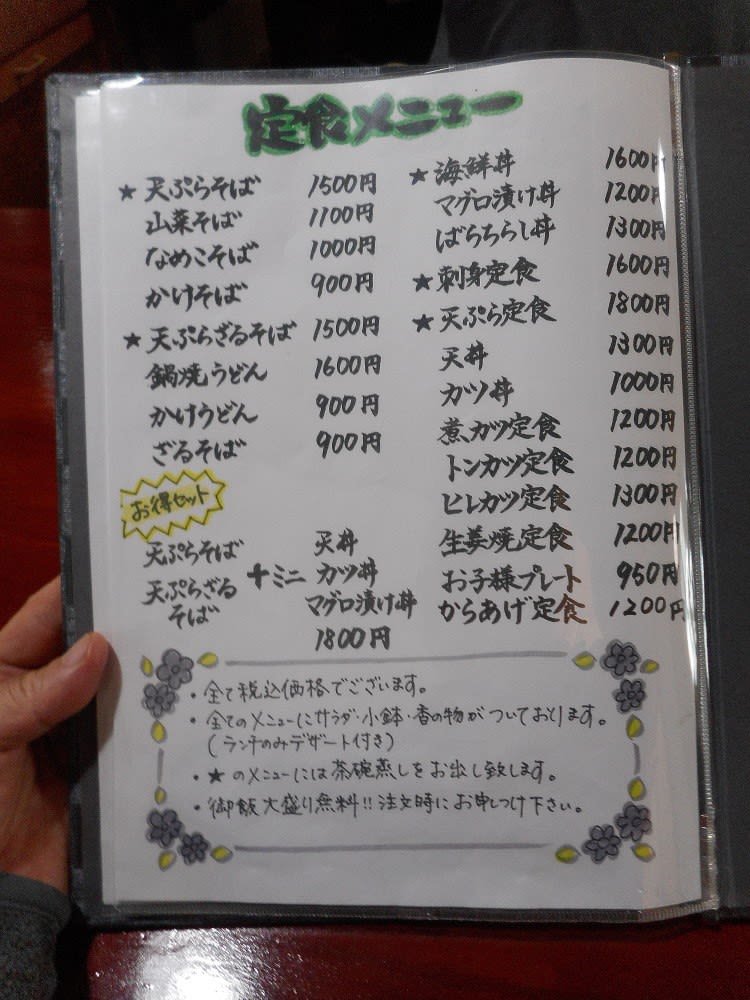 定食メニュー
★天ぷらそば 1500円
山菜そば 1100円
なめこそば 1000円
かけそば 900円
★天ぷらざるそば 1500円
鍋焼うどん 1600円
かけうどん 900円
ざるそば 900円
お得セット
天ぷらそば
天ぷらざる
そば
+ミニ
天丼
カツ丼
マグロ漬け丼
1800円
★海鮮丼 1600円
マグロ漬け丼 1200円
ばらちらし丼 1300円
★刺身定食 1600円
★天ぷら定食 1800円
天丼 1300円
カツ丼 1000円
煮カツ定食 1200円
トンカツ定食 1200円
ヒレカツ定食 1300円
生姜焼定食 1200円
お子様プレート 950円
からあげ定食 1200円
・全て税込価格でございます。
・全てのメニューにサラダ・小鉢・香の物がついております。
(ランチのみデザート付き)
・★のメニューには茶碗蒸しをお出し致します。
・御飯大盛り無料!!注文時にお申しつけ下さい。